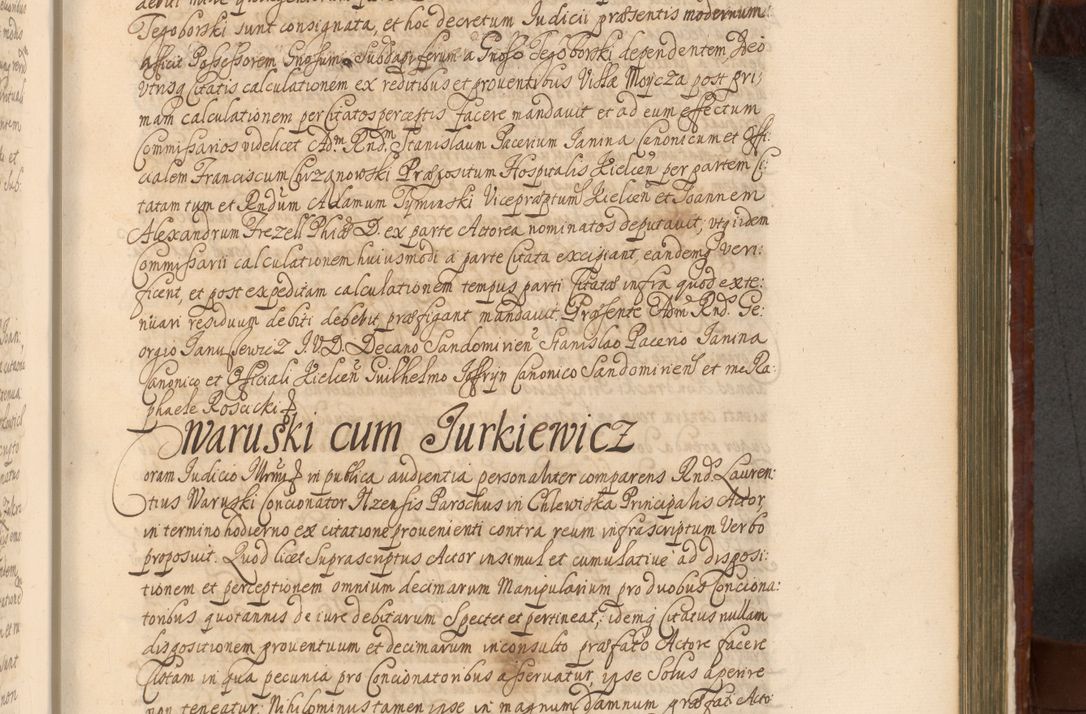 Tegoborski sunt consignata, et hoc decretum Iudicii præsentis modernum
afficit Possessorem Gnosum Subdapiferum a Gnoso Tegoborski dependentem, Deo
Utrisq Citatis calculationem ex reditibus et proventibus Villæ Moycza post pri:
mam calculationem per Citatos perceptis facere mandavit et ad eum effectum
Commissarios videlicet Adm Rndm Stanislaum Pacerium Ianina Canonicum et Offi:
cialem Franciscum Chrzanowski Præpositum Hospitalis Kielcen per partem Ci:
tatam tum et Rndum Adamum Tyminski Vicepræptum Kielcen et Joannem
Alexandrum Frezell Phiæ D. ex parte Actorea nominatos deputavit, utq iidem
Commissarii calculationem huiusmodi a parte Citata excipiant, eandemq veri:
ficent, et post expeditam calculationem tempus parti Citatæ infra quod exte:
nuari residuum debiti debebit præfigant mandavit. Præsente Adm Rnd. Ge:
orgio Ianusewicz I.V.D. Decano Sandomirien Stanislao Pacerio Ianina
Canonico et Officiali Kielcen Guilhelmo Joffryn Canonico Sandomirien et me Ra:
phaele Rosucki
Waruski cum Jurkiewicz
Coram Iudicio in publica audientia personaliter comparens Rnd. Lauren:
tius Waruski Concionator Ilzensis Parochus in Chlewiska Principalis Actor,
in termino hodierno ex citatione provenienti contra reum infrascriptum Verbo
proposuit. Quod licet Suprascriptus Actor insimul et cumulative ad disposi:
tionem et perceptionem omnium decimarum Manipularium pro duobus Conciona:
toribus quotannis de iure debitarum Spectet et pertineat, idemq Citatus nullam
dispositionem proventuum et decimarum inconsulto præfato Actore facere
Cistam in qua pecunia pro Concionatoribus asservatur, ipse Solus aperire
non teneatur. Nihilominus tamen ipse in magnum damnum præfat Acto: